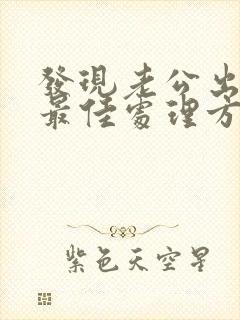 發現老公出
最佳處理方
紫色天空星